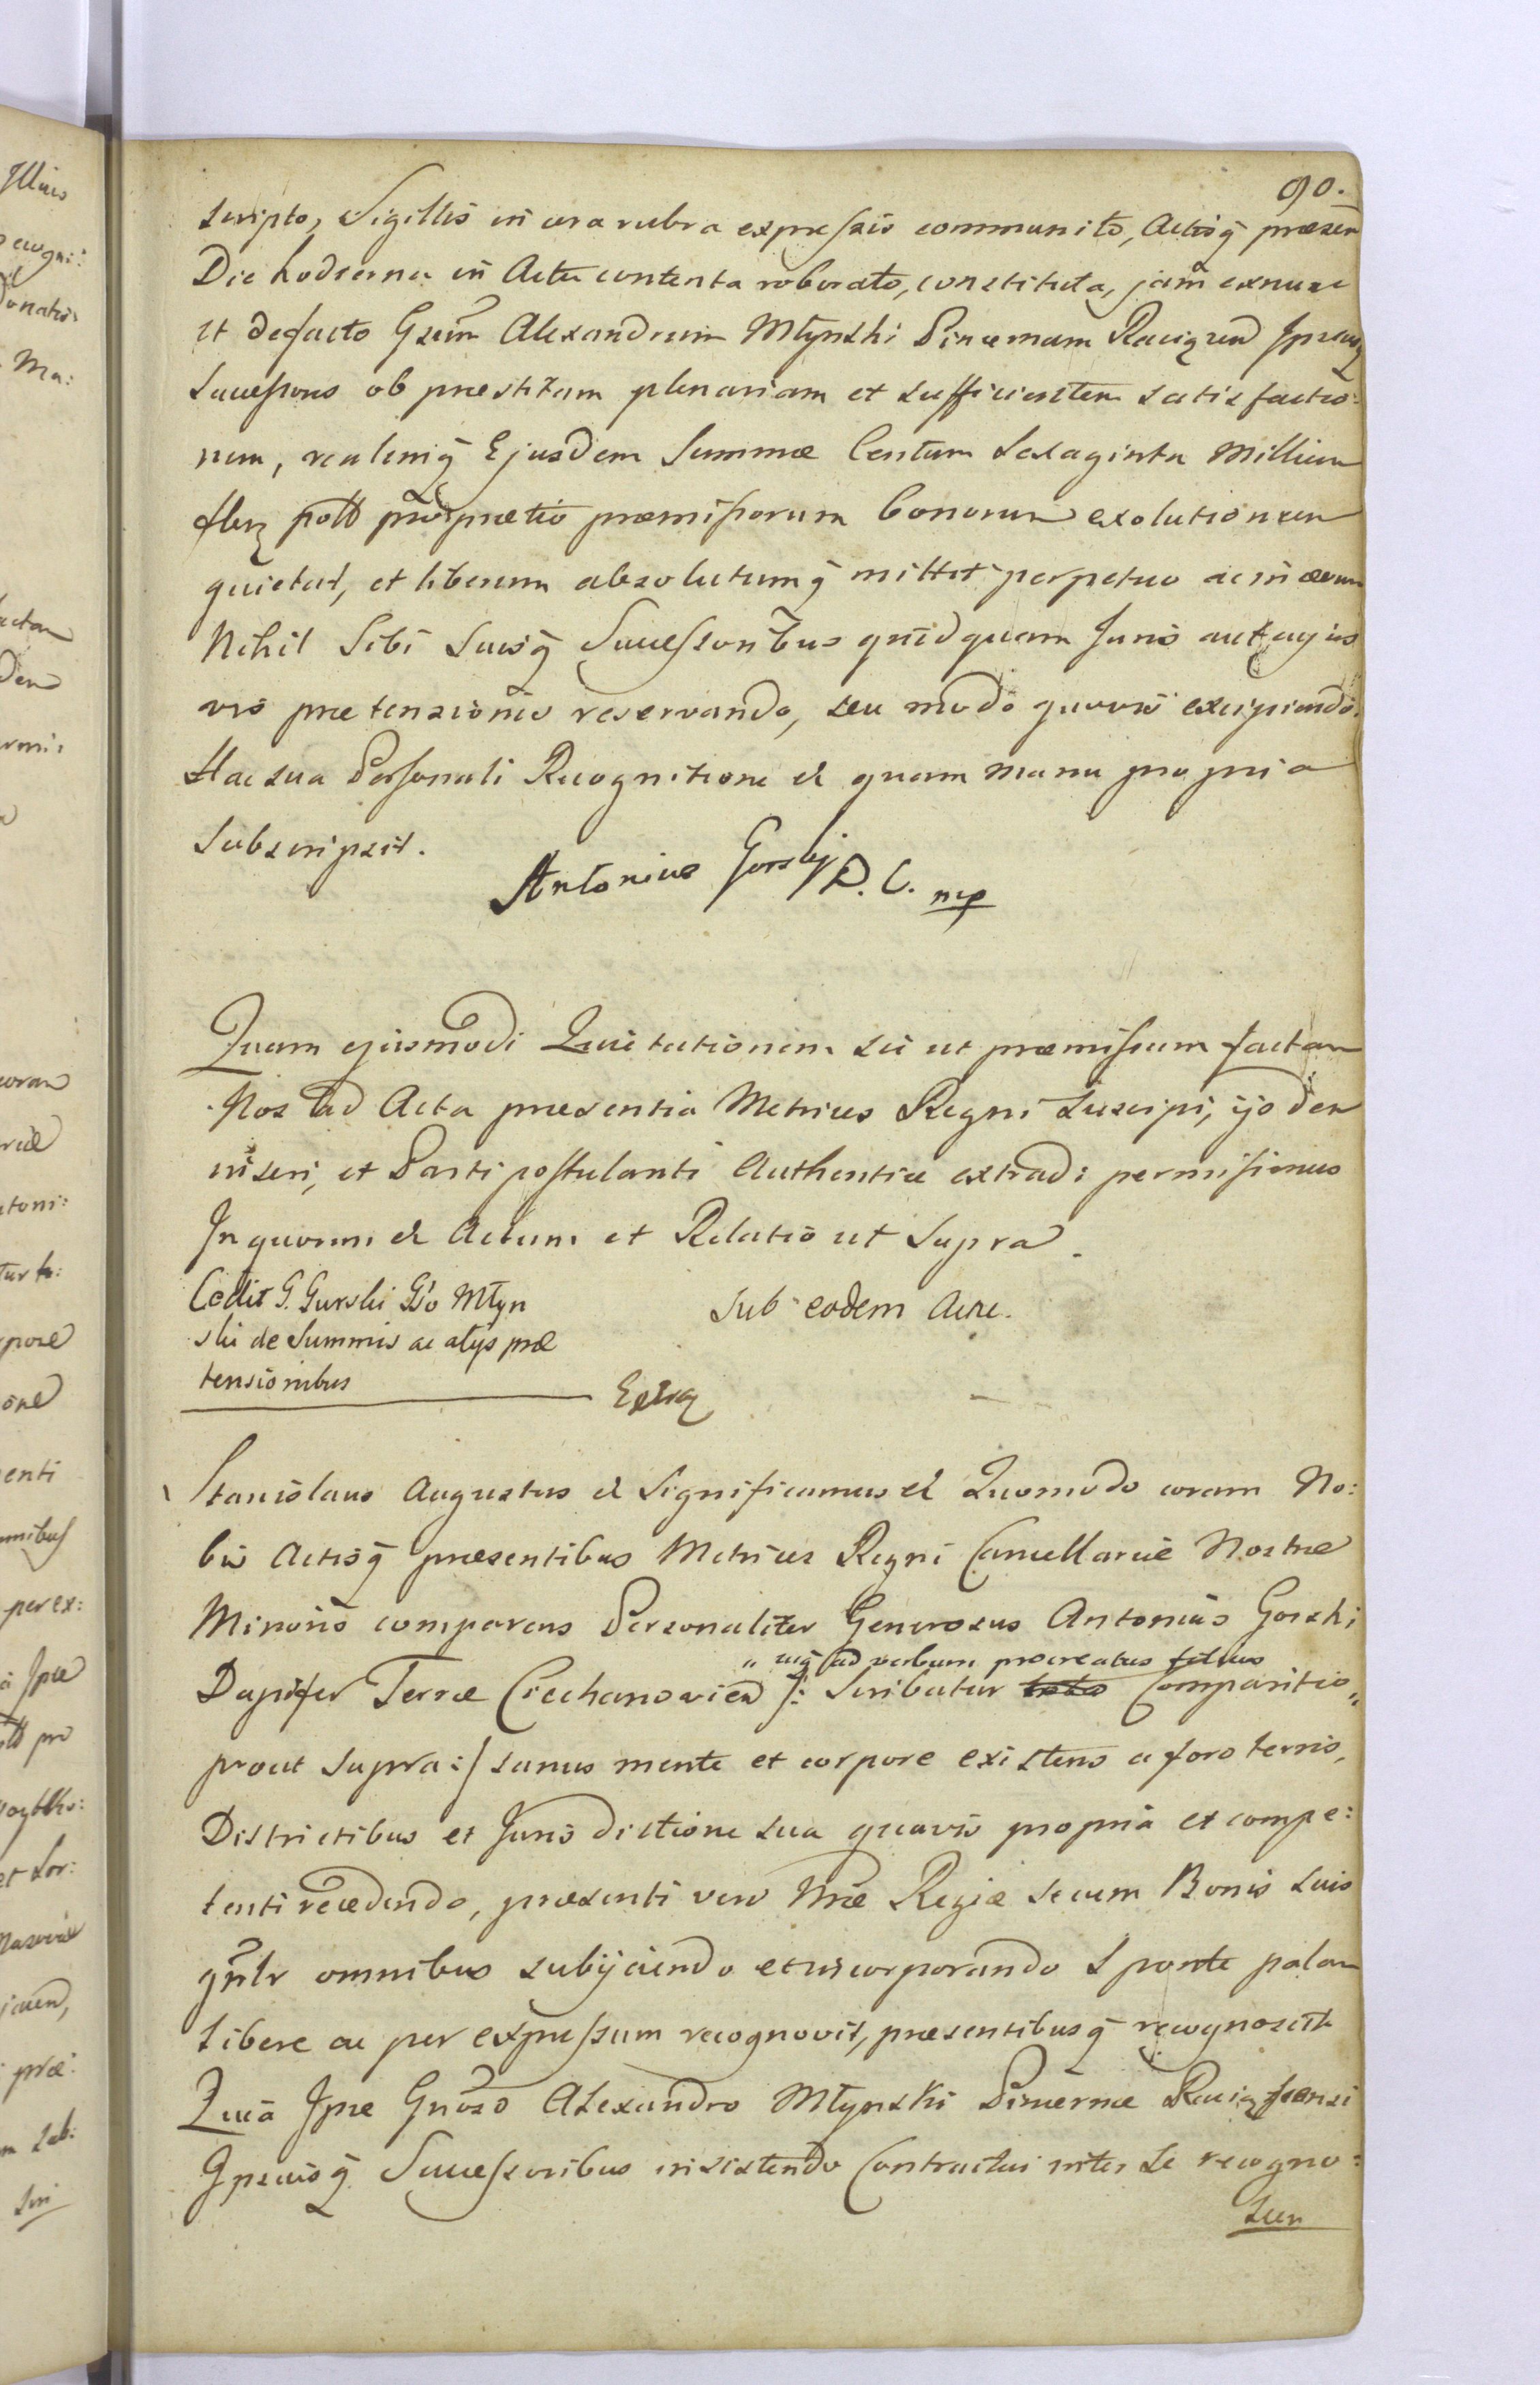 90.
scripto, Sigillis in cera rubra expressis communito, Actisq̃ præsen
Die hodierna in Actu contenta roborato, constituta, jam exnunc
et defacto Gsum Alexandrum Młynski Pincernam Raciązen Ipsiusq
Successores ob præstitam plenariam et sufficientem satisfactio:
nem, realemq̃ Ejusdem Summæ Centum Sexaginta Millium
flor poll pro prætio præmissorum bonorum exolutionem
quietat, et liberum absolutumq̃ mittit perpetuo ac in ævum
Nihil Sibi Suisq̃ Successoribus quidquam Juris aut cujus
vis prætensionis reservando, seu modo quovis excipiendo.
Hac sua Personali Recognitione et quam manu propria
subscripsit.
Antonius Gorski P. C. mp
Quam ejusmodi Quietationem sic ut præmissum factam
Nos ad Acta præsentia Metrices Regni suscipi, ijsdem
inseri, et Parti postulanti Authentice extradi permisimus
In quorum et Actum et Relatio ut supra.
Cedit G. Gurski Gso Młyn
ski de Summis ac alys præ
tensionibus
Sub eodem Actu.
Extr
Stanislaus Augustus et Significamus et Quomodo coram No:
bis Actisq̃ præsentibus Metrices Regni Cancellariæ Nostræ
Minoris comparens Personaliter Generosus Antonius Gorski
" usq̃ ad verbum procreatus filius
Dapifer Terræ Ciechanovien /: Scribatur tota Comparitio "
prout supra :/ sanus mente et corpore existens a foro terris,
Districtibus et Jurisdictione sua quavis propria et compe:
tenti recedendo, præsenti vero Nræ Regiæ se cum Bonis suis
gñlr omnibus subijciendo et incorporando sponte palam
libere ac per expressum recognovit, præsentibusq̃ recognoscit
Quia Ipse Gnoso Alexandro Młynski Pincernæ Raciązensi
Ipsiusq̃ Successoribus insistendo Contractui inter se recogno:
scen